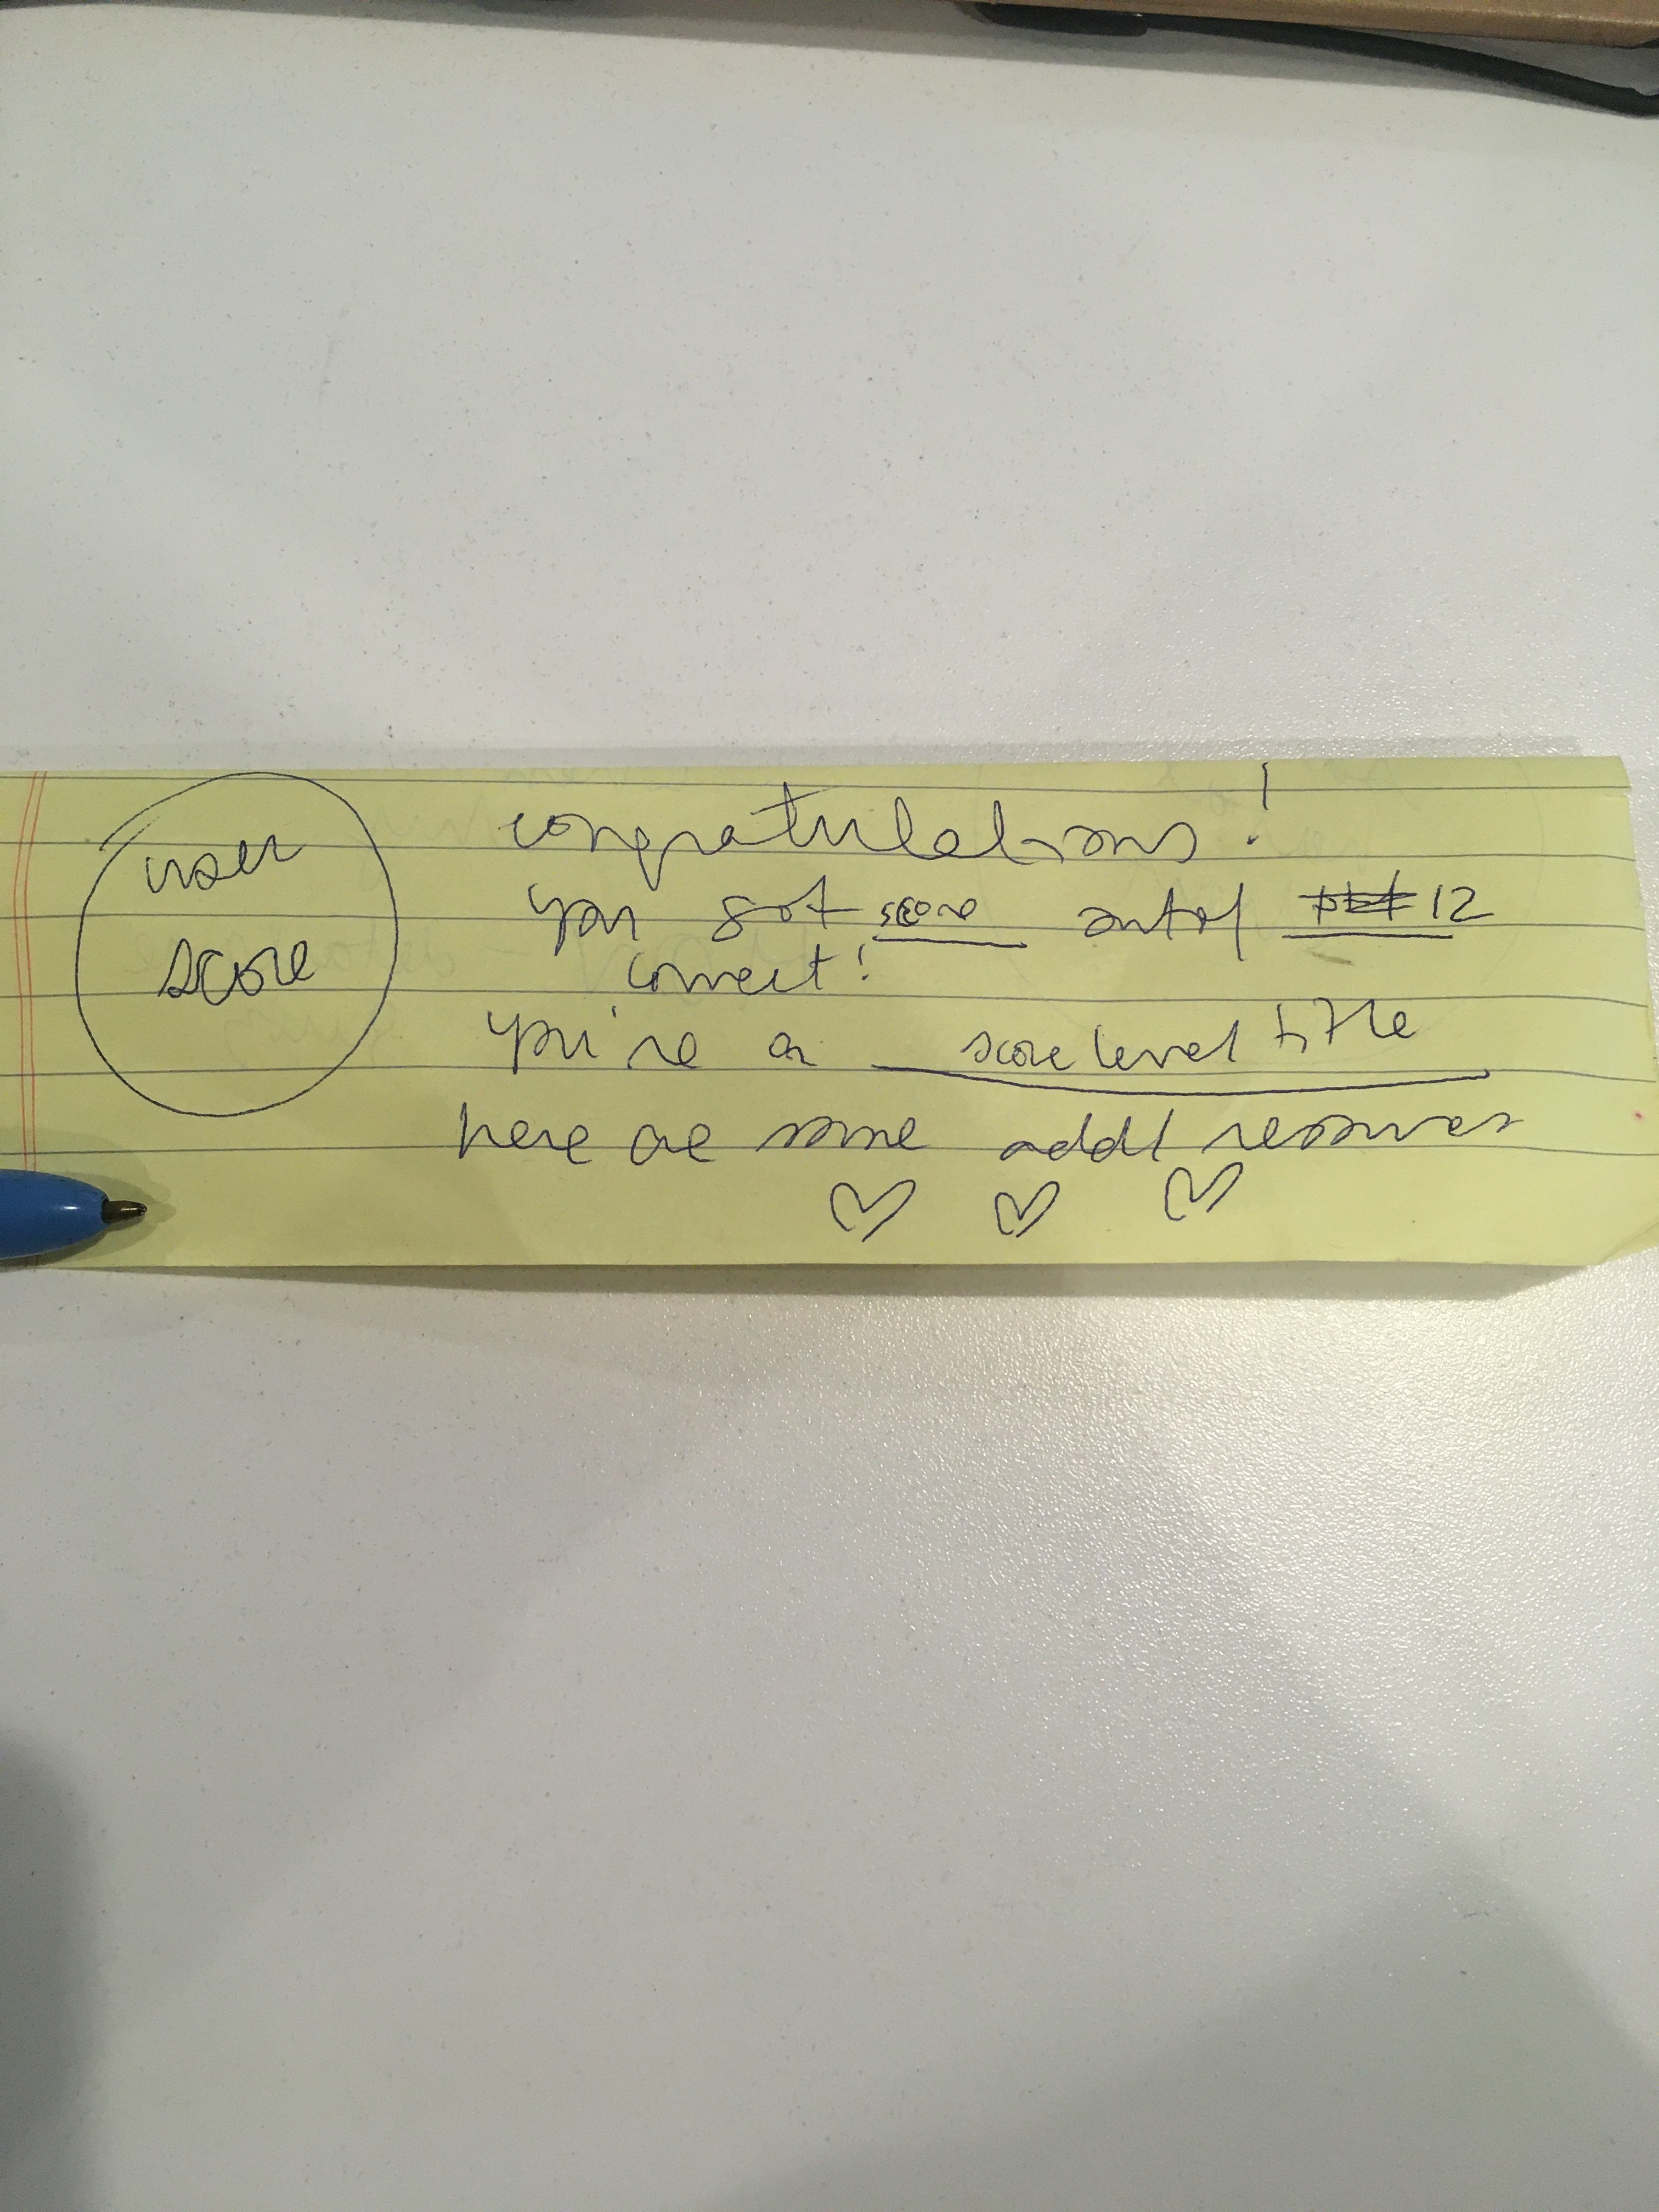 user
score
congratulations!
you got score out of 12
correct!
you're a score level title
here are some addl resources